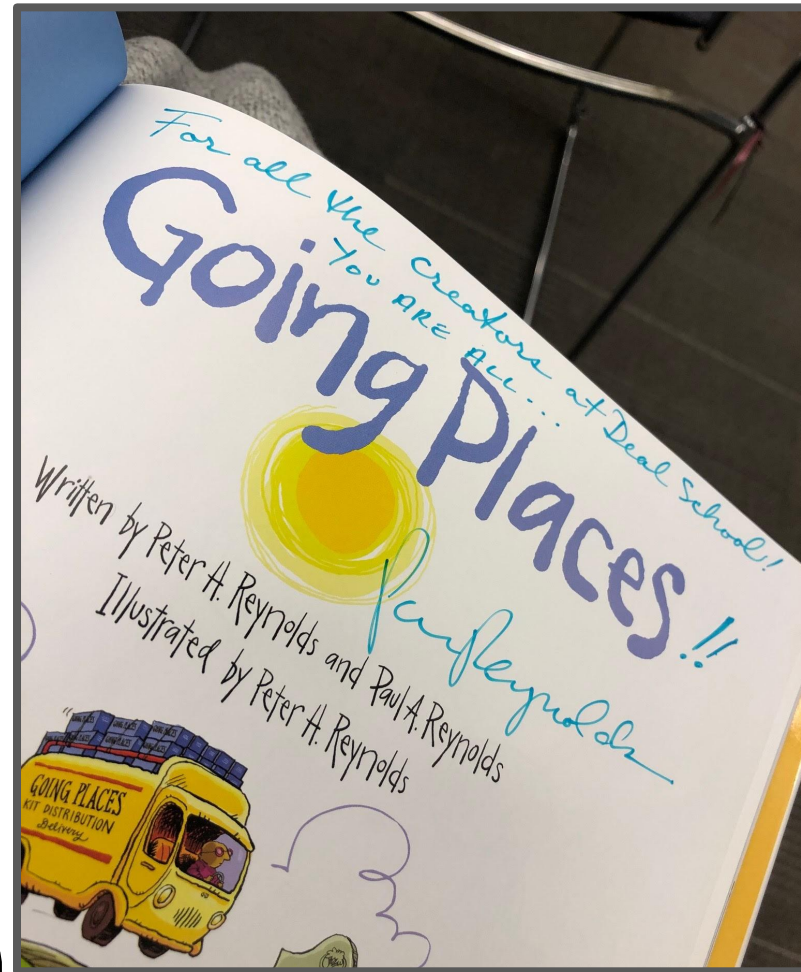 For all the creators at Deal School!
YOU ARE ALL...
Going Places!!
Written by Peter H. Reynolds and Paul A. Reynolds
Illustrated by Peter H. Reynolds
Paul Reynolds
GOING PLACES
KIT DISTRIBUTION
Delivery